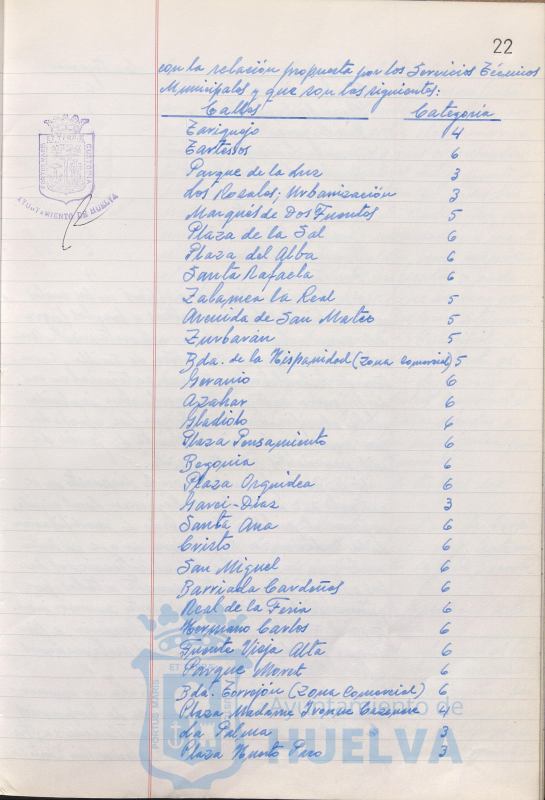 22
con la relación propuesta por los Servicios Técnicos
Municipales y que son las siguientes:
Calles Categoría
Tariquejo 4
Tartessos 6
Parque de la Luz 3
Los Rosales, Urbanización 3
Marqués de Dos Fuentes 5
Plaza de la Sal 6
Plaza del Alba 6
Santa Rafaela 6
Zalamea la Real 5
Avenida de San Mateo 5
Zurbarán 5
Bda. de la Hispanidad (Zona Comercial) 5
Geranio 6
Azahar 6
Gladiolo 6
Plaza Pensamiento 6
Begonia 6
Plaza Orquidea 6
Garci-Díaz 3
Santa Ana 6
Cristo 6
San Miguel 6
Barriada Cardeñas 6
Real de la Feria 6
Hermano Carlos 6
Fuente Vieja Alta 6
Parque Moret 6
Bda. Torrejón (Zona Comercial) 6
Plaza Madame Ivonne Cazenave 4
La Palma 3
Plaza Huerto Paco 3
PORTUS MARIS ET TERRAE CUSTODIA
AYUNTAMIENTO DE HUELVA
PORTUS MARIS ET
Ayuntamiento de
HUELVA